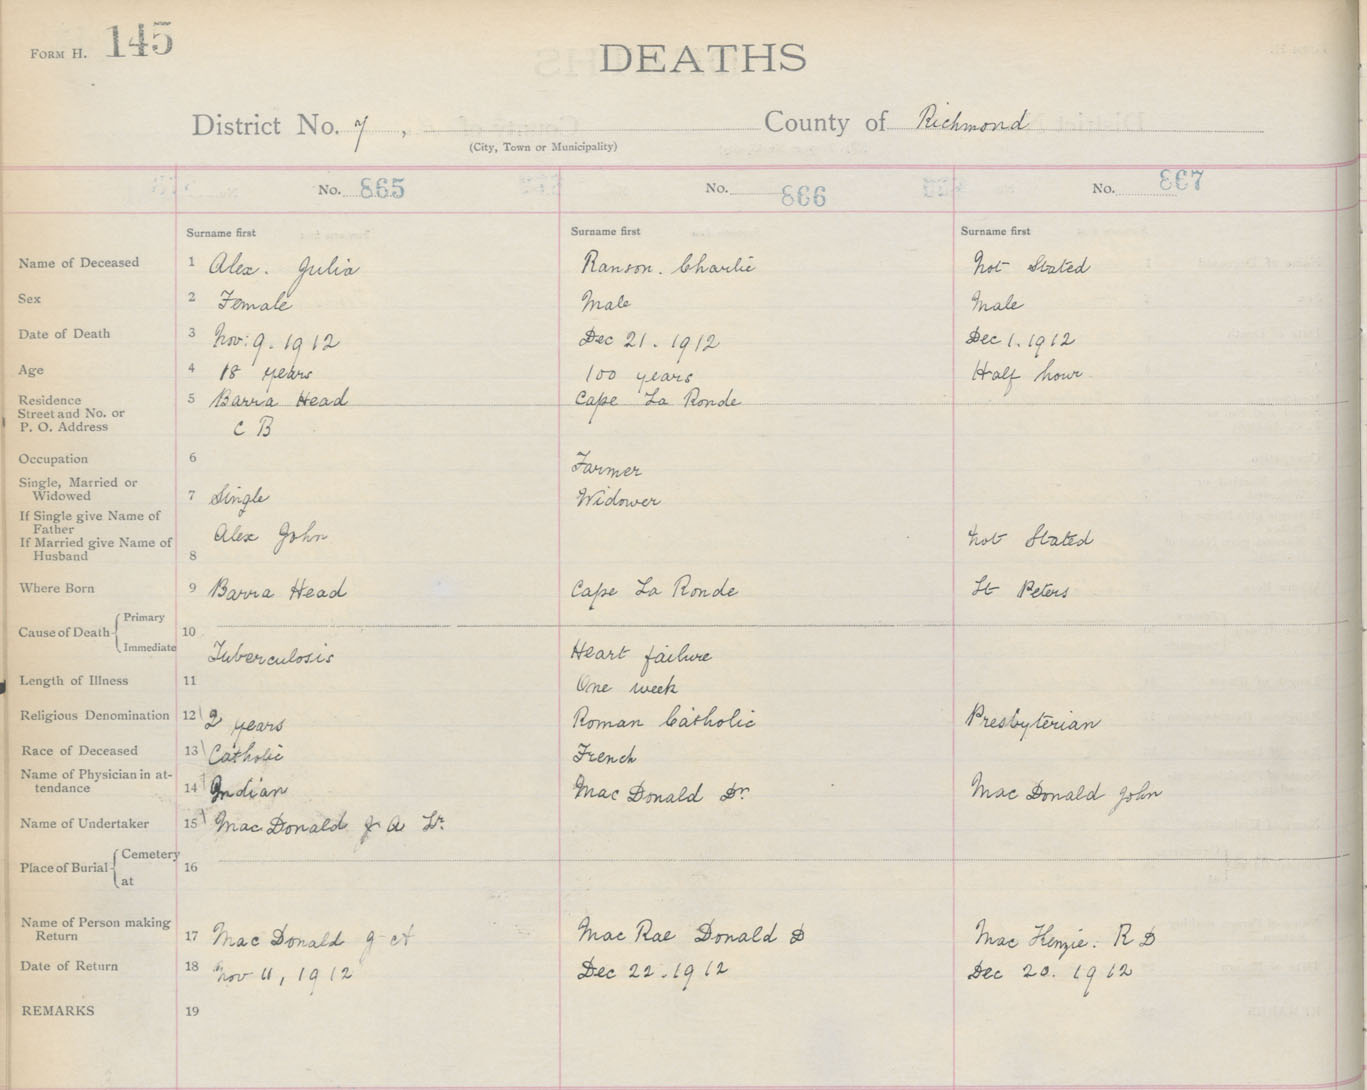 FORM H. 145
DEATHS
District No. 7 , County of Richmond
(City, Town or Municipality)
No. 865 No. 866 No. 867
Surname first Surname first Surname first
Name of Deceased 1 Alex. Julia Ranson. Charlie Not Stated
Sex 2 Female Male Male
Date of Death 3 Nov: 9. 1912 Dec 21. 1912 Dec 1. 1912
Age 4 18 years 100 years Half hour
Residence 5 Barra Head Cape La Ronde
Street and No. or
P. O. Address C B
Occupation 6 Farmer
Single, Married or
Widowed 7 Single Widower
If Single give Name of
Father Alex John Not Stated
If Married give Name of
Husband 8
Where Born 9 Barra Head Cape La Ronde St Peters
Cause of Death Primary 10
Immediate Tuberculosis Heart failure
Length of Illness 11 One week
Religious Denomination 12 2 years Roman Catholic Presbyterian
Race of Deceased 13 Catholic French
Name of Physician in at-
tendance 14 Indian Mac Donald Dr. Mac Donald John
Name of Undertaker 15 Mac Donald J A Dr.
Place of Burial Cemetery 16
at
Name of Person making
Return 17 Mac Donald J A Mac Rae Donald D Mac Kenzie. R D
Date of Return 18 Nov 11, 1912 Dec 22. 1912 Dec 20. 1912
REMARKS 19